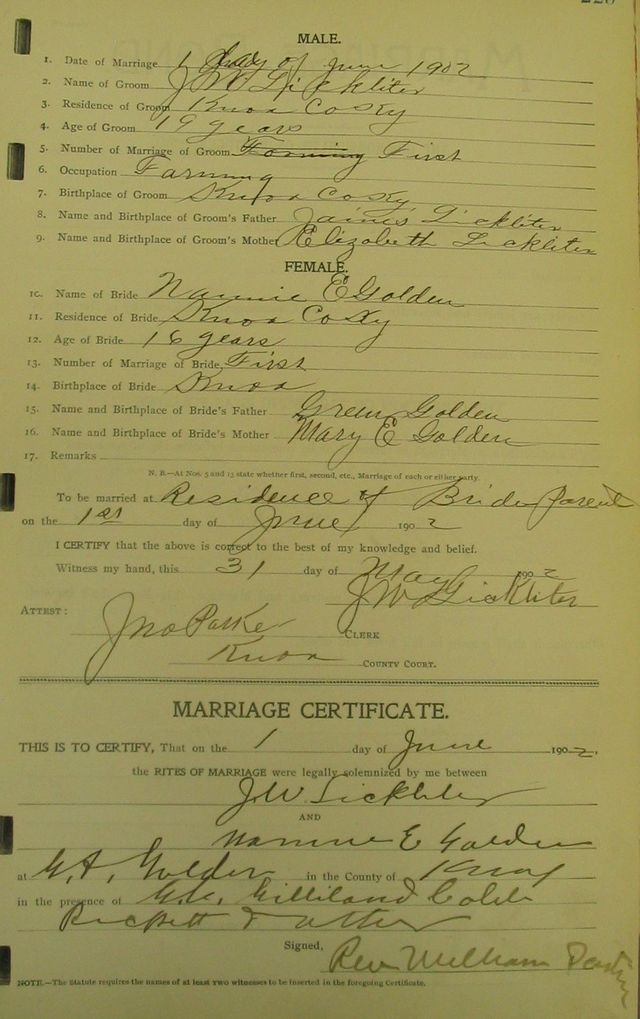 MALE.
1. Date of Marriage 1 day of June 1902
2. Name of Groom J W Lickliter
3. Residence of Groom Knox Co Ky
4. Age of Groom 19 years
5. Number of Marriage of Groom Farming First
6. Occupation Farming
7. Birthplace of Groom Knox Co Ky
8. Name and Birthplace of Groom's Father James Lickliter
9. Name and Birthplace of Groom's Mother Elizabeth Lickliter
FEMALE.
10. Name of Bride Nannie E Golden
11. Residence of Bride Knox Co Ky
12. Age of Bride 16 years
13. Number of Marriage of Bride, First
14. Birthplace of Bride Knox
15. Name and Birthplace of Bride's Father Green Golden
16. Name and Birthplace of Bride's Mother Mary E Golden
17. Remarks
N. B.—At Nos. 5 and 13 state whether first, second, etc., Marriage of each or either party.
To be married at Residence of Bride Parent
on the 1st day of June 1902
I CERTIFY that the above is correct to the best of my knowledge and belief.
Witness my hand, this 31 day of May 1902
J W Lickliter
ATTEST:
Jno Parker CLERK
Knox COUNTY COURT.
MARRIAGE CERTIFICATE.
THIS IS TO CERTIFY, That on the 1 day of June 1902.
the RITES OF MARRIAGE were legally solemnized by me between
J W Lickliter
AND
Nannie E Golden
at G. A. Golden in the County of Knox
in the presence of Gilliland Caleb
Rickett
Signed, Rev William
NOTE.—The Statute requires the names of at least TWO witnesses to be inserted in the foregoing Certificate.